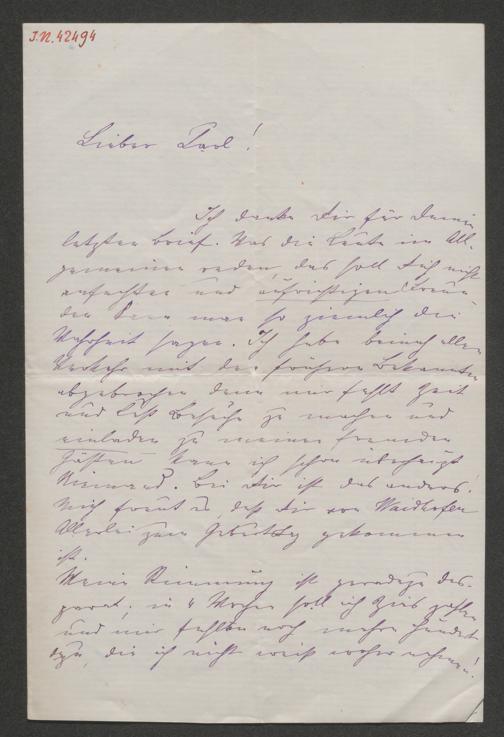 J.N. 42494
Lieber Carl!
Ich danke Dir für Deinen
letzten Brief. Was die Leute im All-
gemeinen reden, das soll Dich nicht
anfechten und aufrichtigen Freun-
den kann man so ziemlich die
Wahrheit sagen. Ich habe beinah allen
Verkehr mit den früheren Bekannten
abgebrochen denn mir fehlt Zeit
und Lust Besuche zu machen und
einladen zu meinen fremden
Gästen kann ich schon überhaupt
Niemand. Bei Dir ist das anders.
Mich freut es, daß Dir von Waidhofen
Allerlei zum Geburtstag gekommen
ist.
Meine Stimmung ist geradezu des-
perat; in 4 Wochen soll ich Zins zahlen
und mir fehlen noch mehre hundert
dazu, die ich nicht weiß woher nehmen!